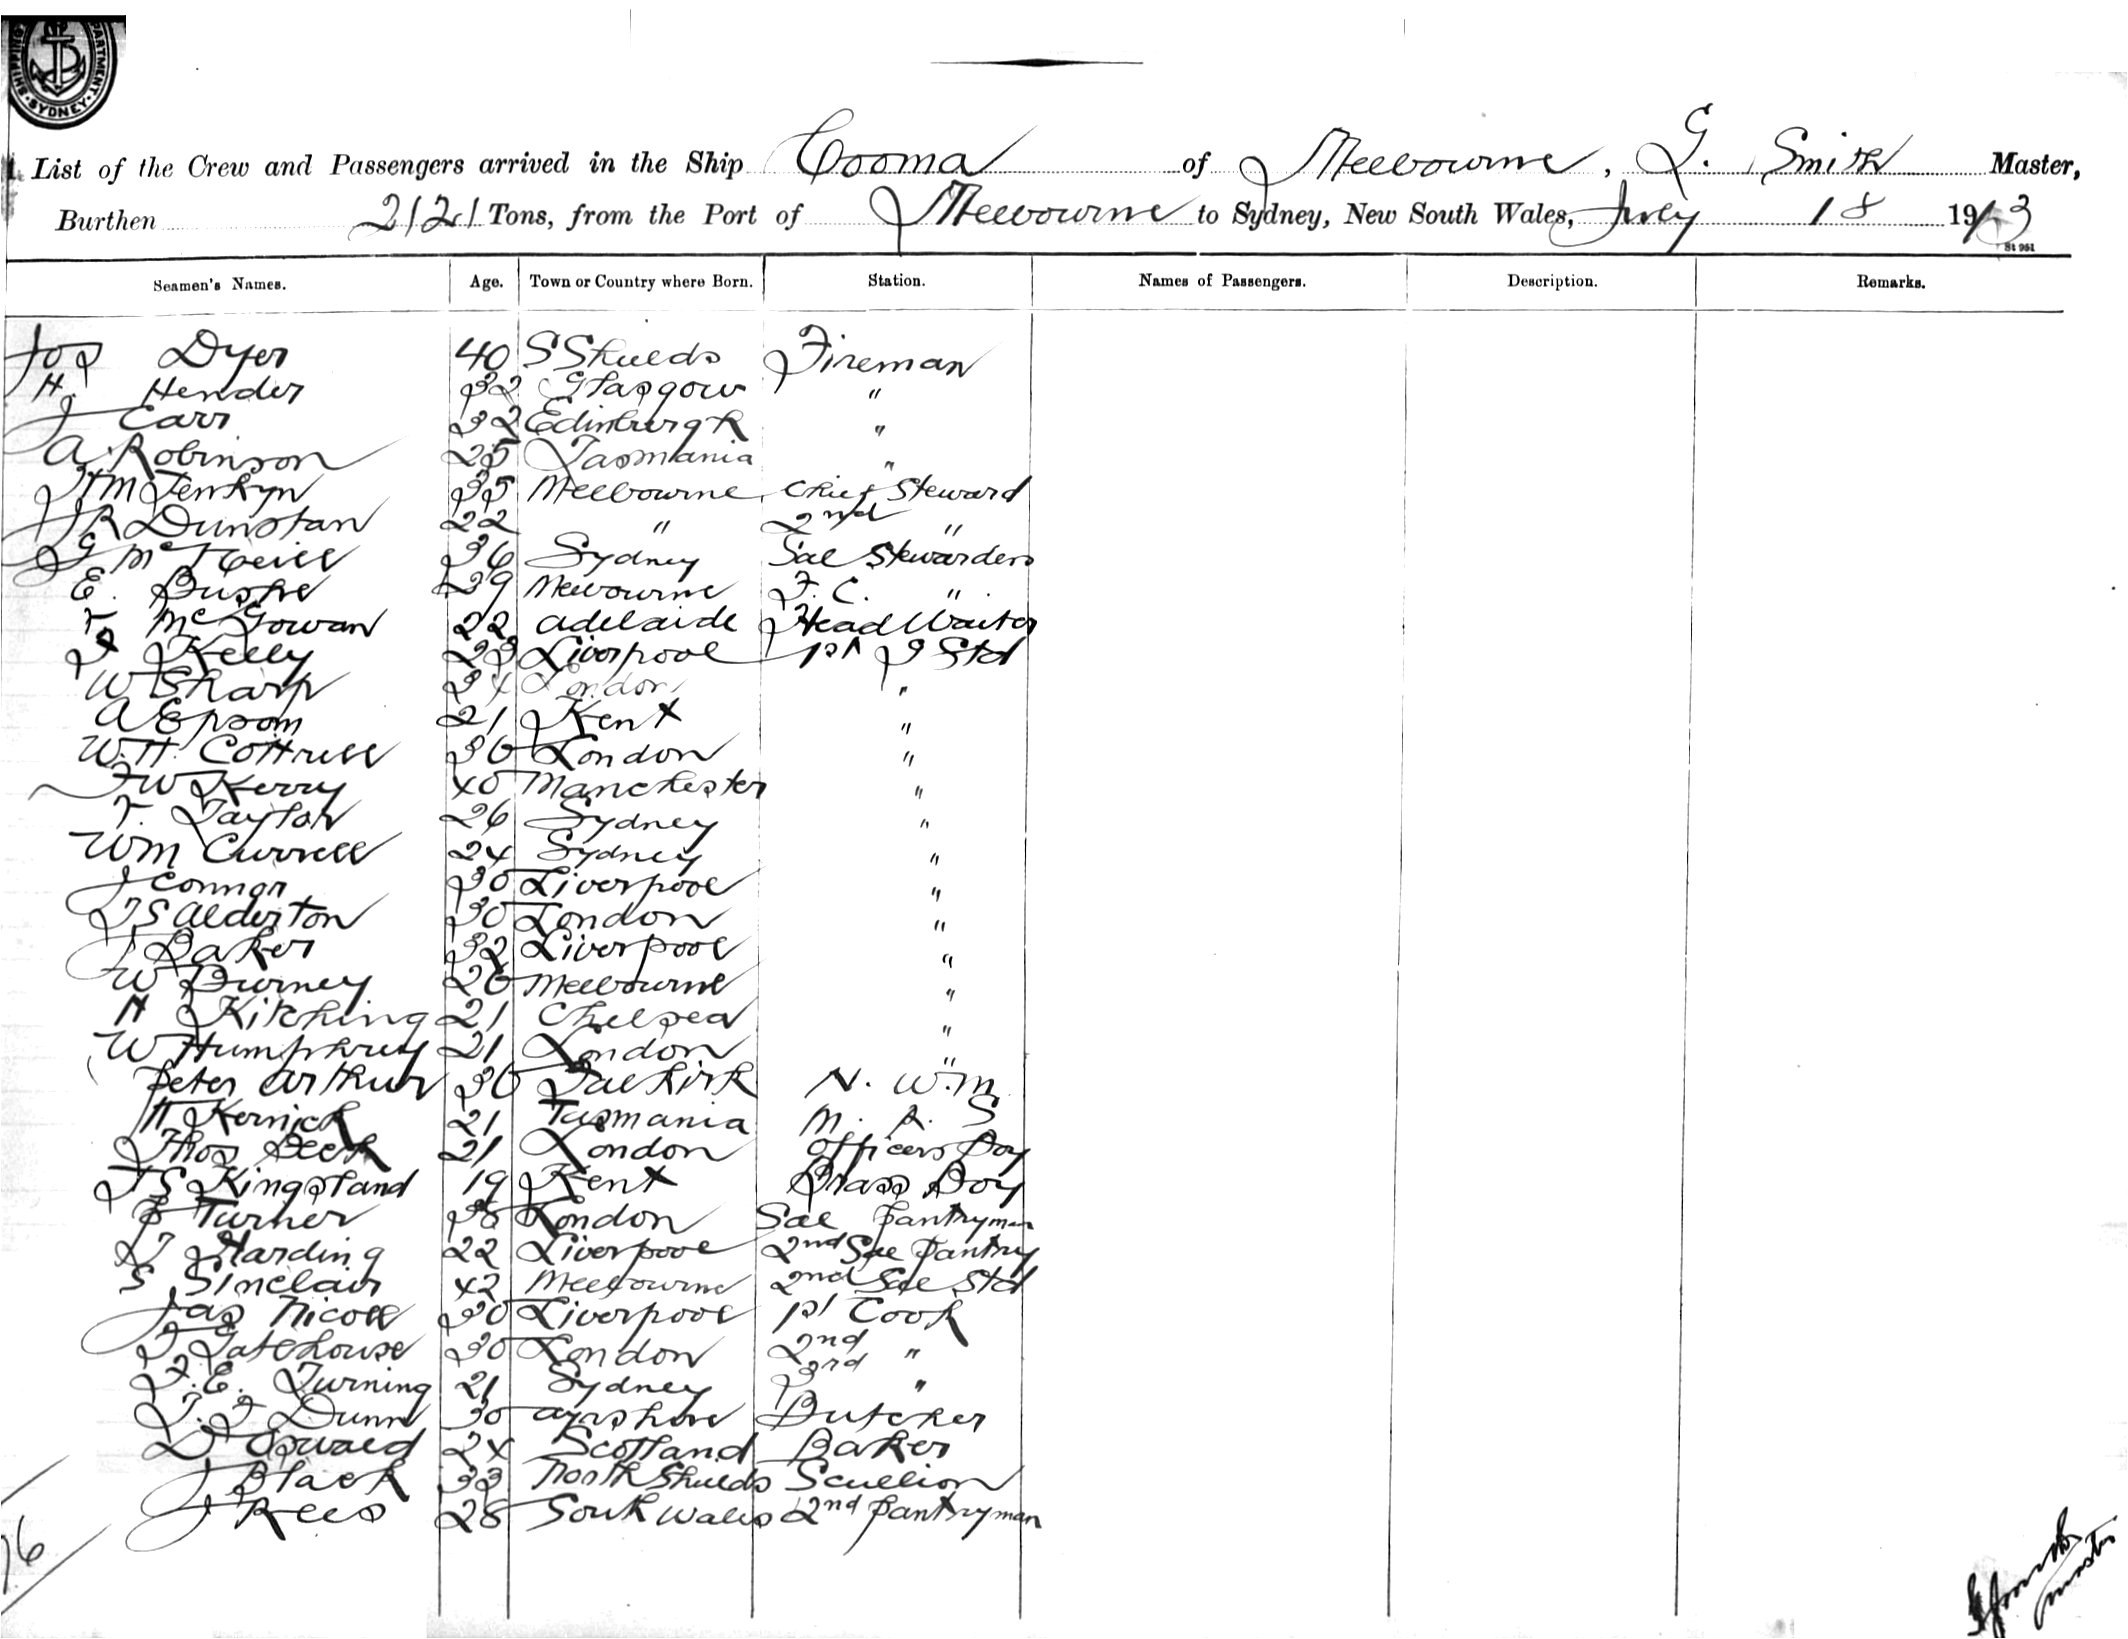 SHIPPING DEPARTMENT · SYDNEY ·
List of the Crew and Passengers arrived in the Ship Cooma of Melbourne, G. Smith Master,
Burthen 2121 Tons, from the Port of Melbourne to Sydney, New South Wales, July 18 1913
St 951
Seamen's Names. Age. Town or Country where Born. Station. Names of Passengers. Description. Remarks.
Jos Dyer 40 S Shields Fireman
H. Hender 32 Glasgow "
J Carr 32 Edinburgh "
A Robinson 25 Tasmania "
Jenkyn 35 Melbourne Chief Steward
Dunstan 22 " 2nd "
G McNeill 36 Sydney Sal Stewardess
E. Bushe 39 Melbourne F. C. "
F McGowan 22 Adelaide Head Waiter
Kelly 23 Liverpool 1st S Std
W Sharp 34 London "
A Epsom 21 Kent "
W.H. Cottrell 30 London "
FW Kerry 40 Manchester "
T. Taylor 26 Sydney "
Wm Currell 24 Sydney "
J Connor 30 Liverpool "
T S Alderton 30 London "
J Baker 32 Liverpool "
W Burney 26 Melbourne "
H Kitching 21 Chelsea "
W Humphrey 21 London "
Peter Arthur 30 Falkirk N. W.M
H Kernick 21 Tasmania M. R. S
Thos Beck 21 London Officers Boy
T S Kingsland 19 Kent Brass Boy
Turner 38 London Sal Pantryman
T Harding 22 Liverpool 2nd Sal Pantry
S Sinclair 42 Melbourne 2nd Sal Std
Jas Nicoll 30 Liverpool 1st Cook
T Gatehouse 30 London 2nd "
F. E. Turning 21 Sydney 3rd "
Dunn 30 Ayrshire Butcher
D Oswald 24 Scotland Baker
J Black 33 North Shields Scullion
J Rees 28 South Wales 2nd Pantryman
76
G Smith
Master